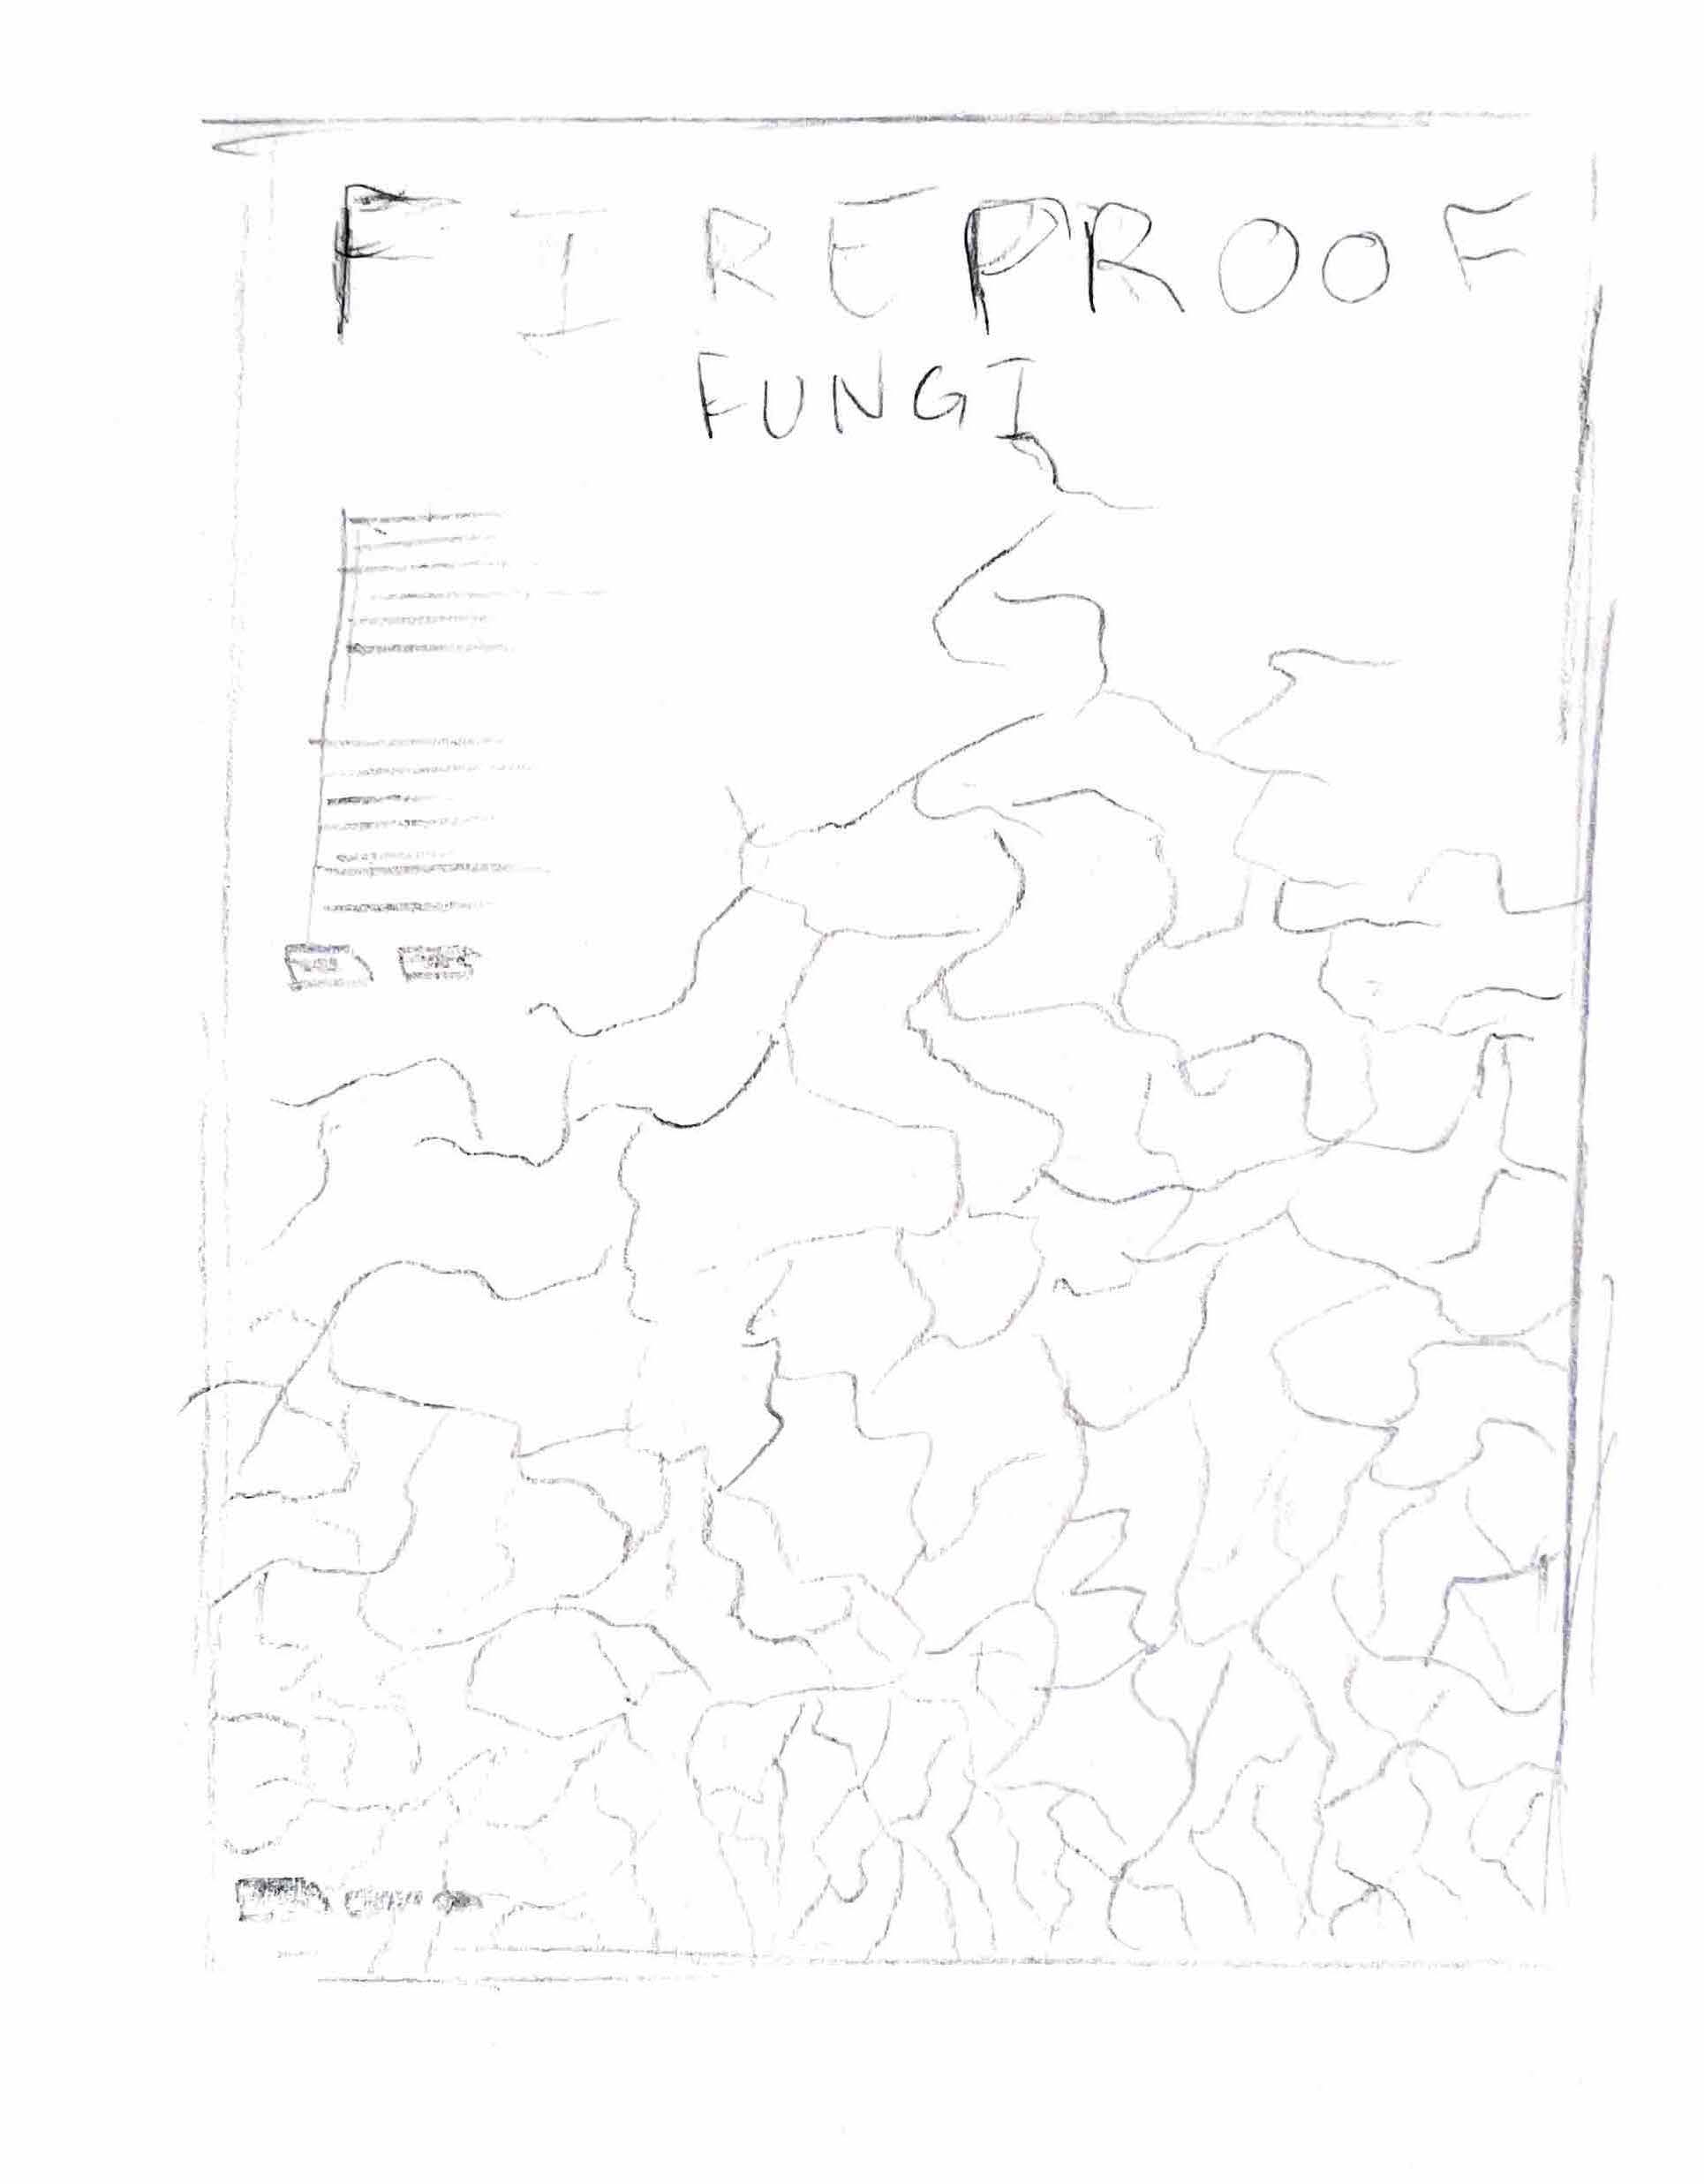 FIREPROOF
FUNGI